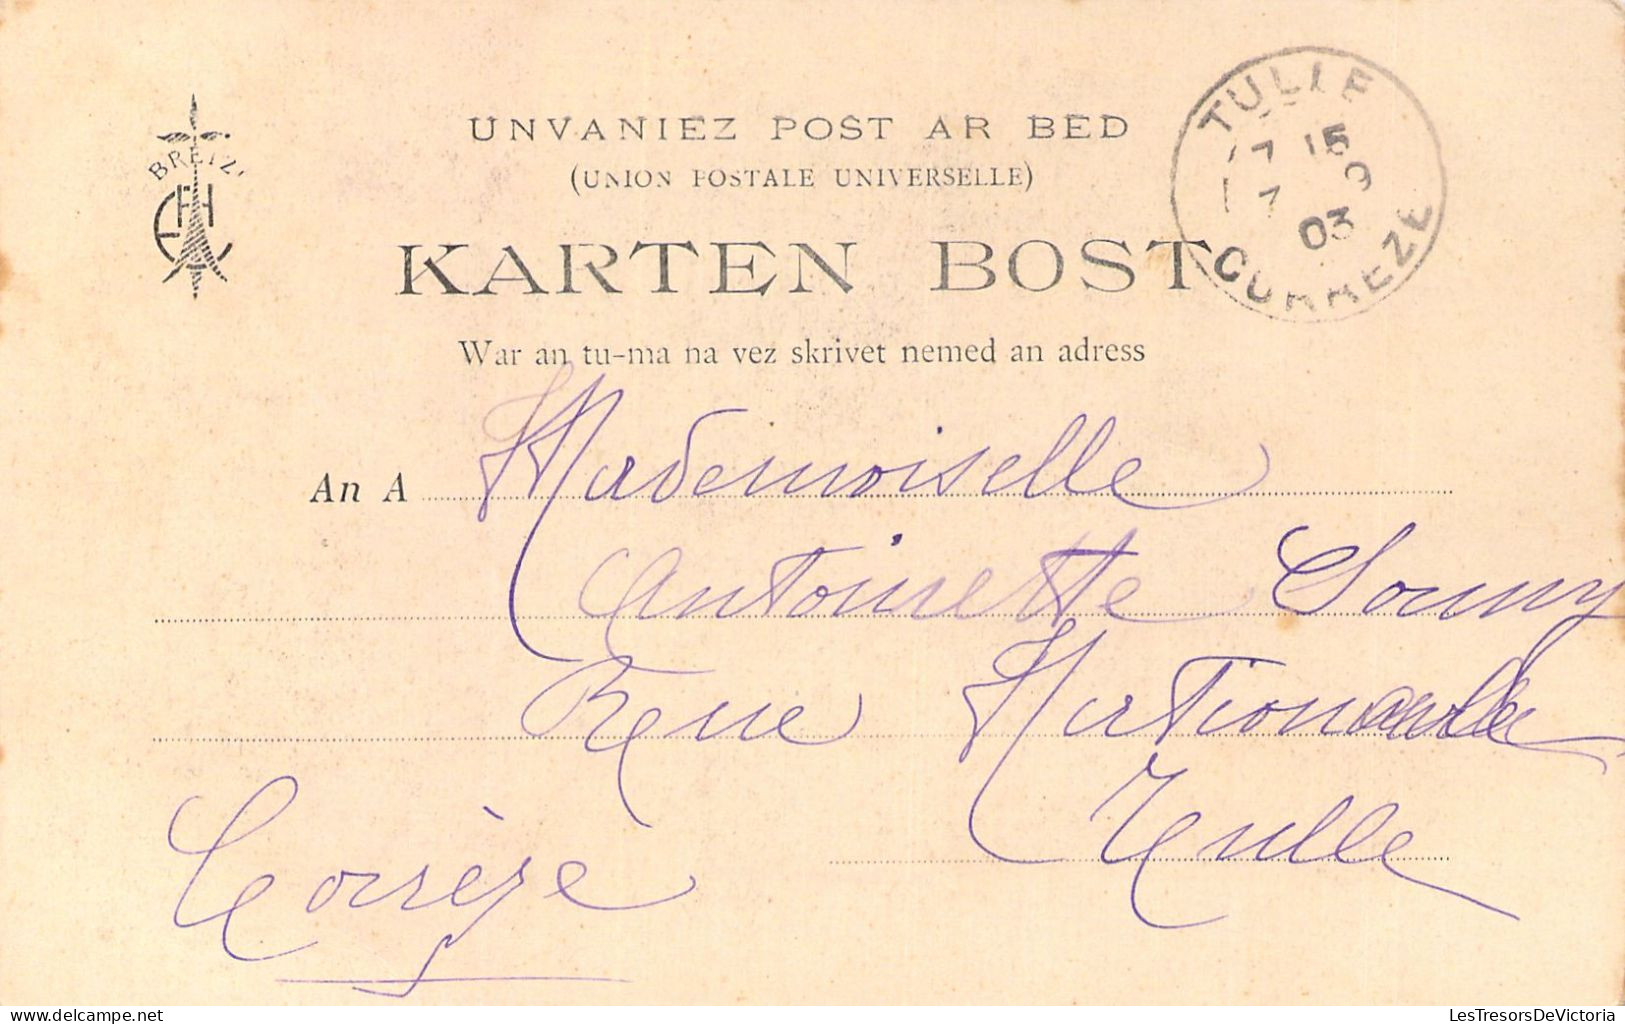 BREIZ
UNVANIEZ POST AR BED
(UNION POSTALE UNIVERSELLE)
KARTEN BOST
War an tu-ma na vez skrivet nemed an adress
TULLE
7 15
7 9
03
CORREZE
An A Mademoiselle
Antoinette Soumy
Rue Nationale
Tulle
Corrèze
delcampe.net
LesTresorsDeVictoria